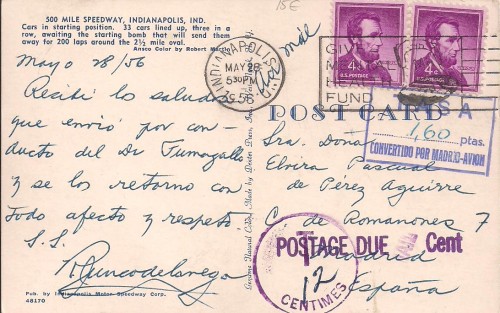 15E
500 MILE SPEEDWAY, INDIANAPOLIS, IND.
Cars in starting position. 33 cars lined up, three in a
row, awaiting the starting bomb that will send them
away for 200 laps around the 2½ mile oval.
Ansco Color by Robert
Mayo 28/56
Recibí los saludos
que envió por con-
ducto del Dr
y se los retorno con
todo afecto y respeto.
S.S.
Pub. by Indianapolis Motor Speedway Corp.
48170
Genuine Natural Color Made by Dexter Press, Inc.
INDIANAPOLIS
MAY 28
530PM
1956
Air mail
GIV
FUND
4¢
U.S. POSTAGE
4¢
U.S. POSTAGE
POST CARD
S A
1,60 ptas.
CONVERTIDO POR MADRID-AVION
Sra. Dona
Elvira Pascual
de Pérez Aguirre
C. de Romanones 7
Madrid
España
POSTAGE DUE Cent
T
12
CENTIMES